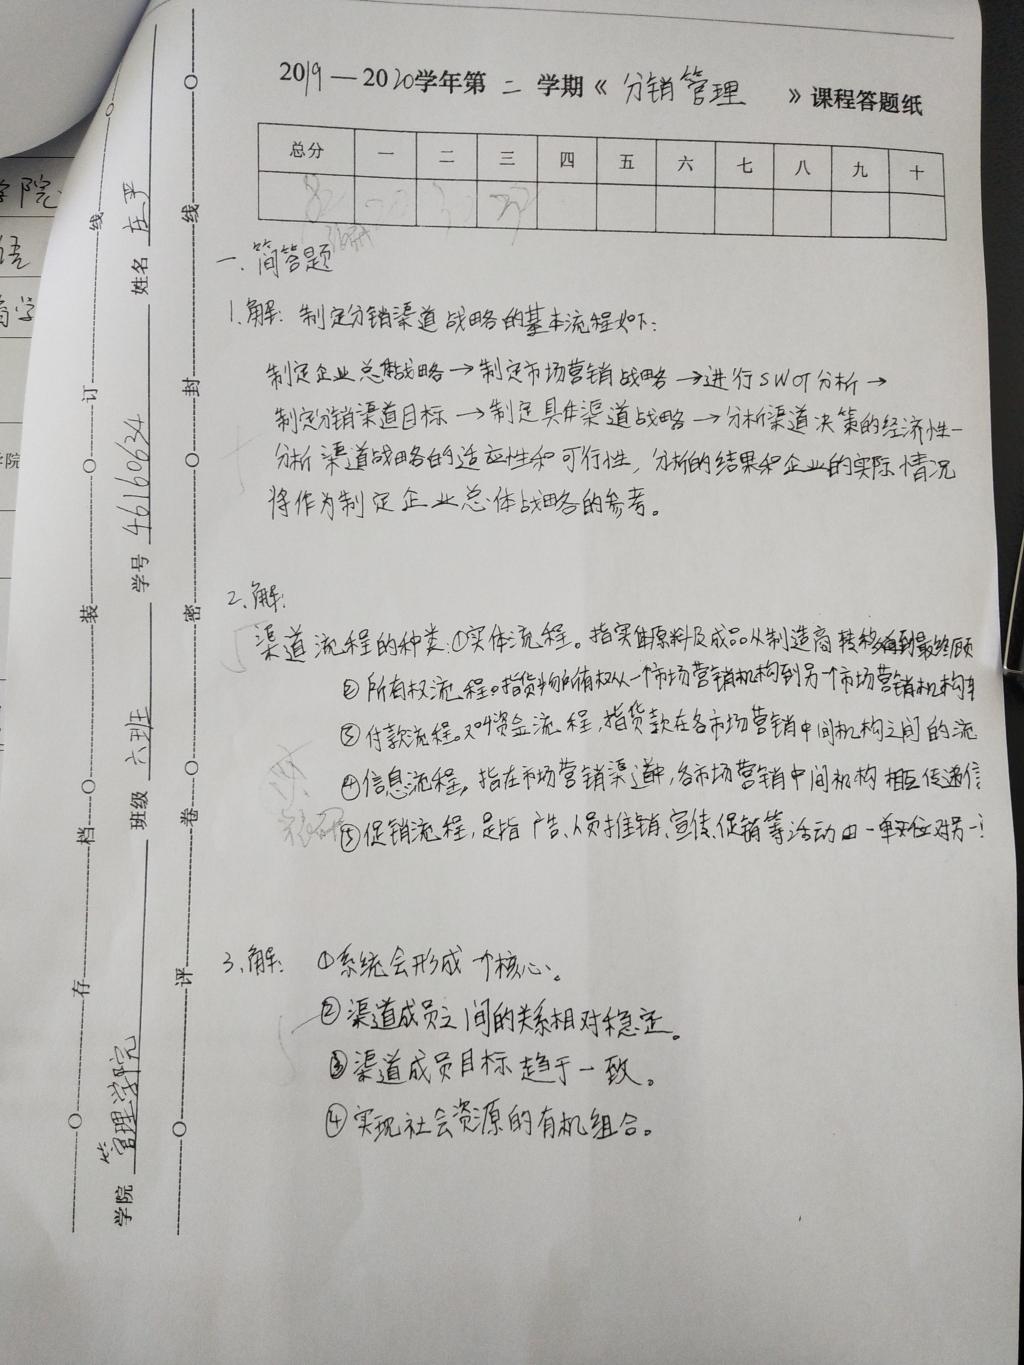 2019—2020学年第 二 学期《 分销管理 》课程答题纸
总分 一 二 三 四 五 六 七 八 九 十
82 20 30
一、简答题
1.解：制定分销渠道战略的基本流程如下：
制定企业总体战略→制定市场营销战略→进行SWOT分析→
制定分销渠道目标→制定具体渠道战略→分析渠道决策的经济性—
分析渠道战略的适应性和可行性，分析的结果和企业的实际情况
将作为制定企业总体战略的参考。
2.解：
渠道流程的种类：①实体流程。指实体原料及成品从制造商转移到最终顾
②所有权流程。指货物所有权从一个市场营销机构到另一个市场营销机构
③付款流程。又叫资金流程，指货款在各市场营销中间机构之间的流
④信息流程，指在市场营销渠道中，各市场营销中间机构相互传递信
⑤促销流程，是指广告、人员推销、宣传、促销等活动由一单位对另一
3.解：①系统会形成一个核心。
②渠道成员之间的关系相对稳定。
③渠道成员目标趋于一致。
④实现社会资源的有机组合。
学院 管理学院 班级 六班 学号 46160634 姓名 庄严
存 档 装 订 线
评 卷 密 封 线
学院
语
商学
学院